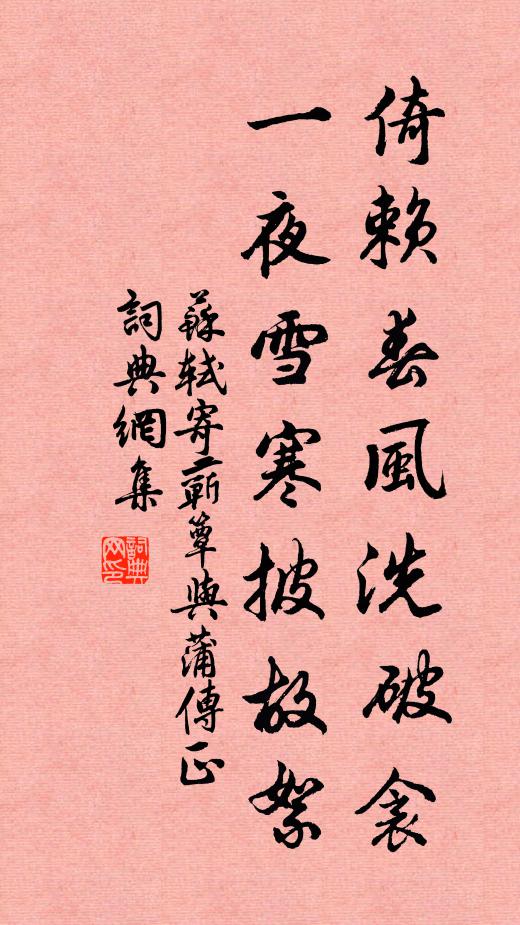 倚賴春風洗破衾
一夜雪寒披故絮
蘇軾寄蘄簟與蒲傳正
詞典網集
詞典
网印